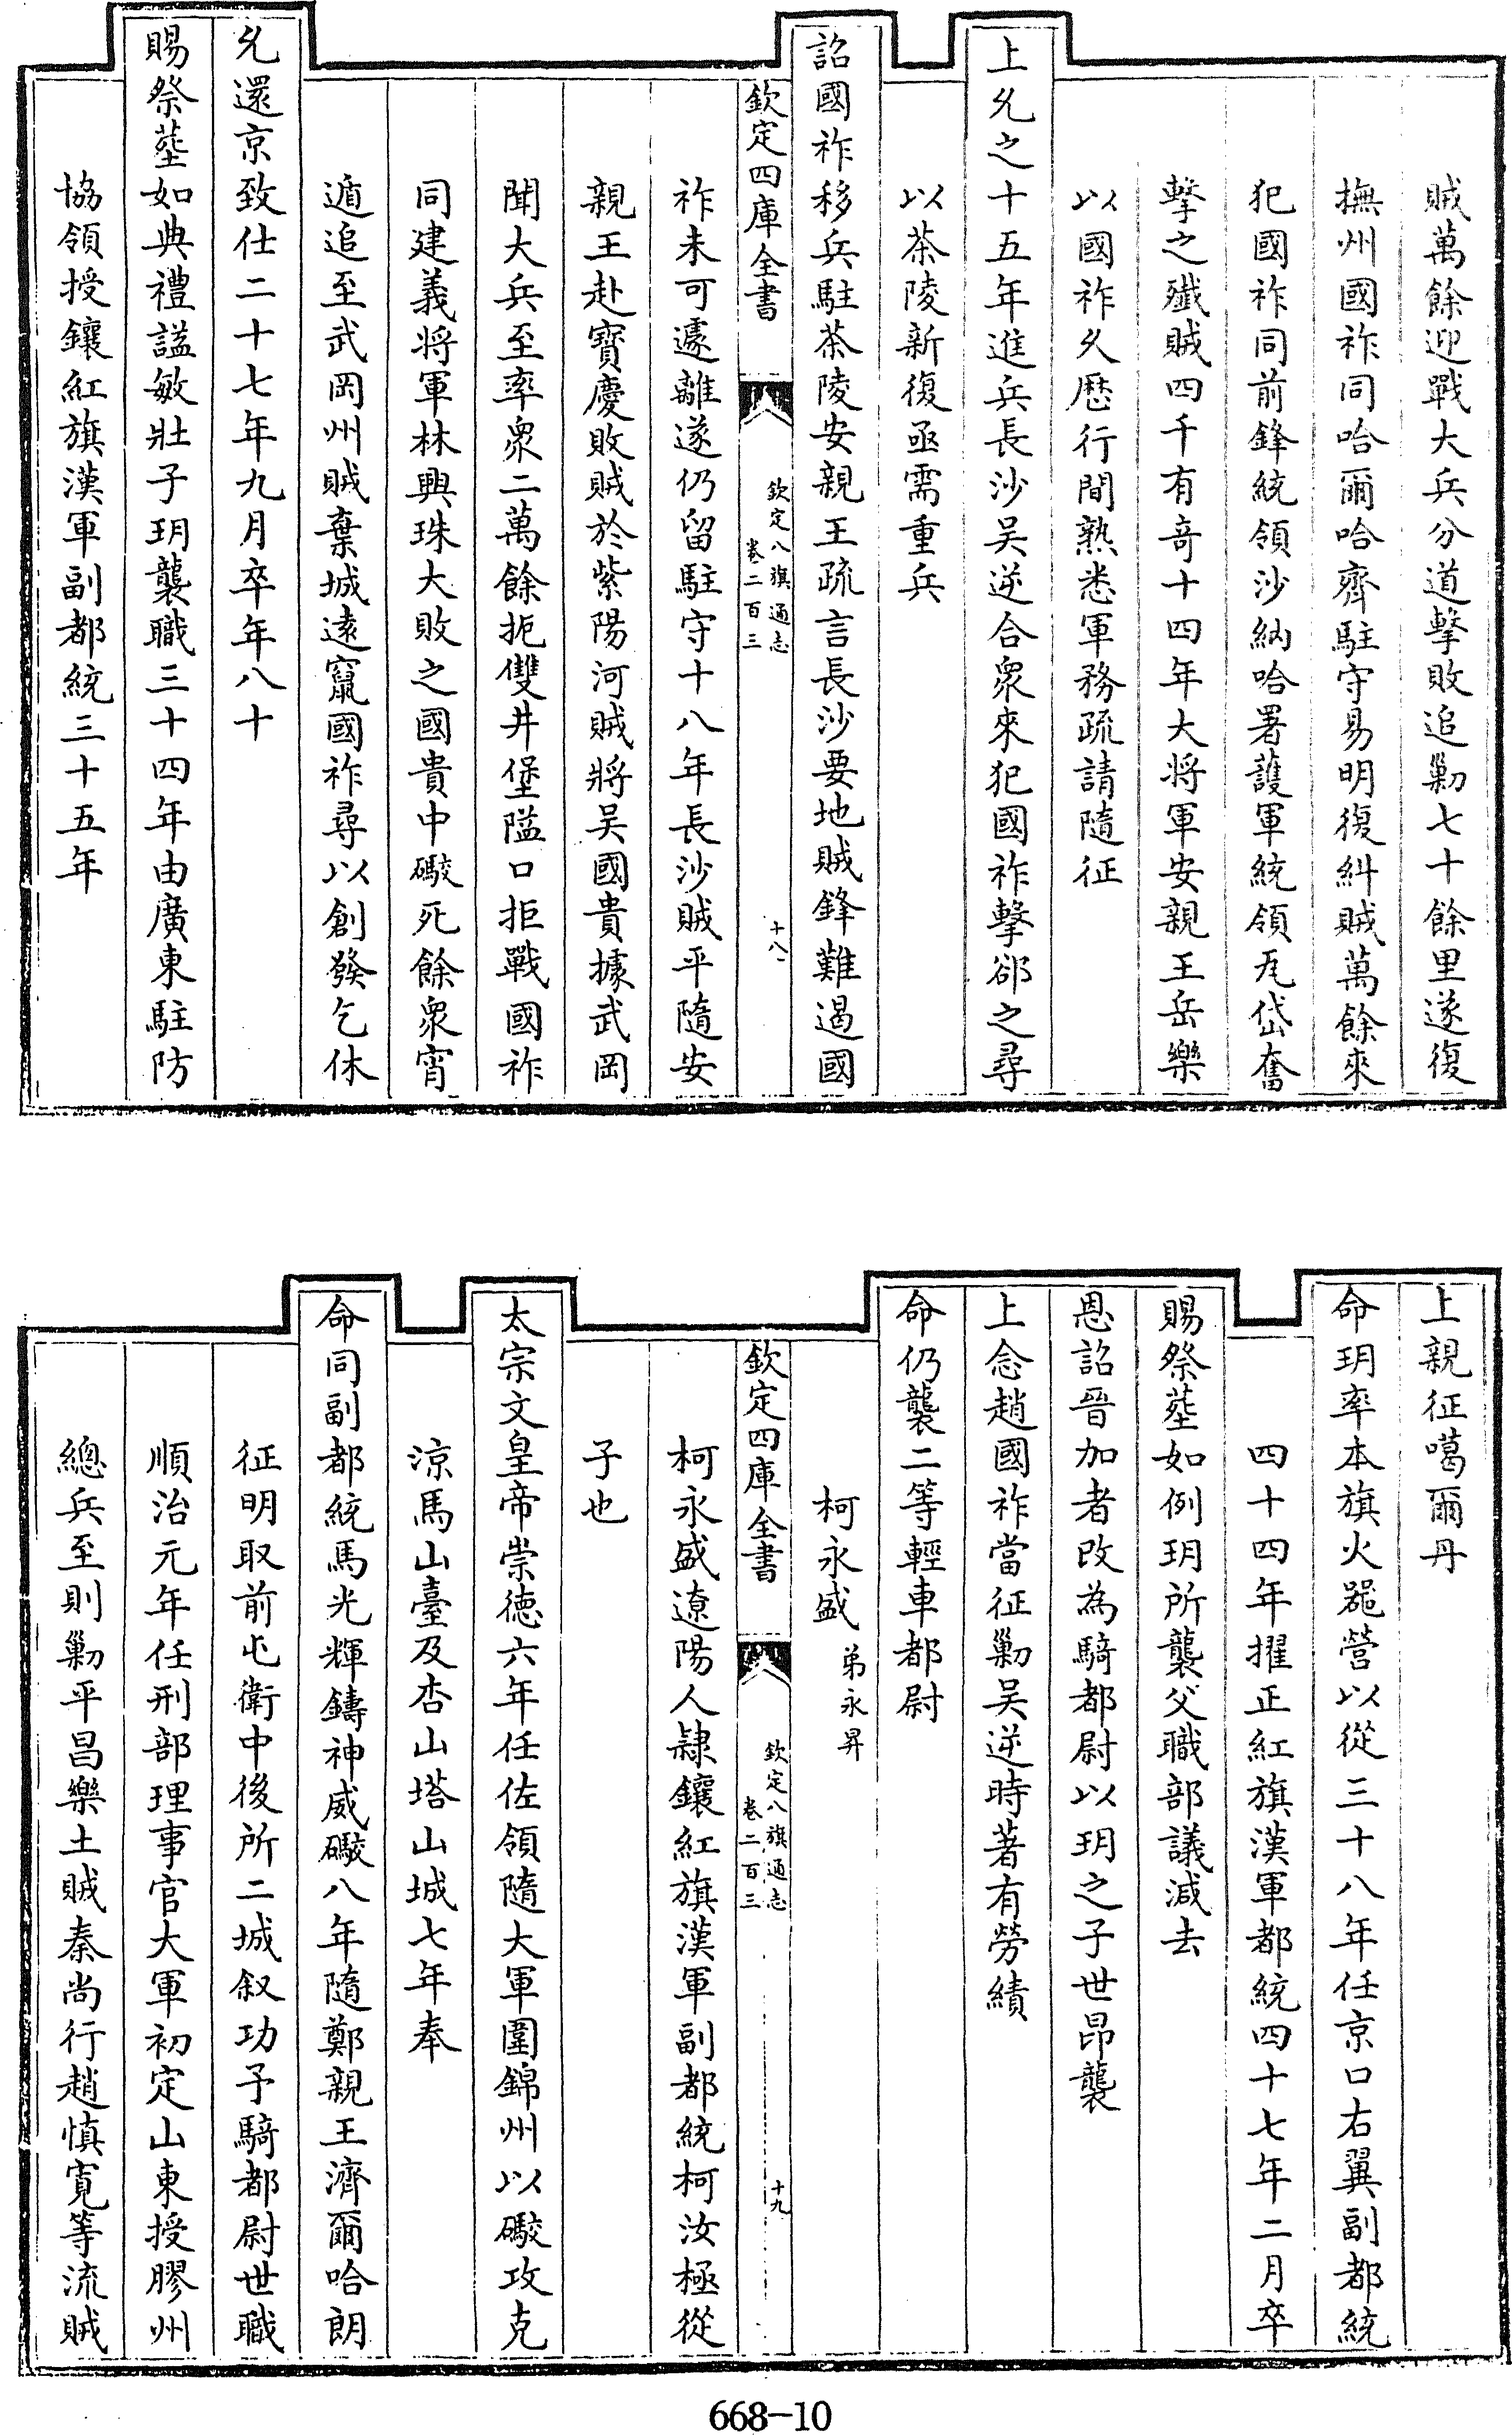 賊萬餘迎戰大兵分道擊敗追勦七十餘里遂復
撫州國祚同哈爾哈齊駐守易明復糾賊萬餘來
犯國祚同前鋒統領沙納哈署護軍統領瓦岱奮
擊之殱賊四千有竒十四年大將軍安親王岳樂
以國祚久歴行間熟悉軍務疏請隨征
上允之十五年進兵長沙吳逆合衆來犯國祚擊郤之尋
以茶陵新復亟需重兵
詔國祚移兵駐茶陵安親王疏言長沙要地賊鋒難遏國
欽定四庫全書
欽定八旗通志
卷二百三
十八
祚未可遽離遂仍留駐守十八年長沙賊平隨安
親王赴寶慶敗賊於紫陽河賊將吳國貴據武岡
聞大兵至率衆二萬餘扼雙井堡隘口拒戰國祚
同建義將軍林興珠大敗之國貴中礮死餘衆宵
遁追至武岡州賊棄城遠竄國祚尋以創發乞休
允還京致仕二十七年九月卒年八十
賜祭塟如典禮諡敏壯子玥襲職三十四年由廣東駐防
協領授鑲紅旗漢軍副都統三十五年
上親征噶爾丹
命玥率本旗火器營以從三十八年任京口右翼副都統
四十四年擢正紅旗漢軍都統四十七年二月卒
賜祭塟如例玥所襲父職部議減去
恩詔晉加者改為騎都尉以玥之子世昂襲
上念趙國祚當征勦吳逆時著有勞績
命仍襲二等輕車都尉
柯永盛 弟永昇
欽定四庫全書
欽定八旗通志
卷二百三
十九
柯永盛遼陽人隸鑲紅旗漢軍副都統柯汝極從
子也
太宗文皇帝崇德六年任佐領隨大軍圍錦州以礮攻克
涼馬山臺及杏山塔山城七年奉
命同副都統馬光輝鑄神威礮八年隨鄭親王濟爾哈朗
征明取前屯衛中後所二城叙功予騎都尉世職
順治元年任刑部理事官大軍初定山東授膠州
總兵至則勦平昌樂土賊秦尚行趙慎寬等流賊
668-10